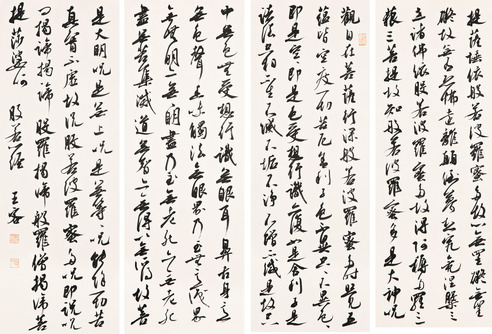 提薩埵依般若波羅蜜多故心無罣礙無罣
礙故無有恐怖遠離顛倒夢想究竟涅槃三
世諸佛依般若波羅蜜多故得阿耨多羅三
藐三菩提故知般若波羅蜜多是大神咒
觀自在菩薩行深般若波羅蜜多時照見五
蘊皆空度一切苦厄舍利子色不異空空不異色色
即是空空即是色受想行識亦復如是舍利子是
諸法空相不生不滅不垢不淨不增不減是故空
中無色無受想行識無眼耳鼻舌身意
無色聲香味觸法無眼界乃至無意識界
無無明亦無無明盡乃至無老死亦無老死
盡無苦集滅道無智亦無得以無所得故菩
是大明咒是無上咒是無等等咒能除一切苦
真實不虛故說般若波羅蜜多咒即說咒
曰揭諦揭諦般羅揭諦般羅僧揭諦菩
提莎婆訶 般若經 王